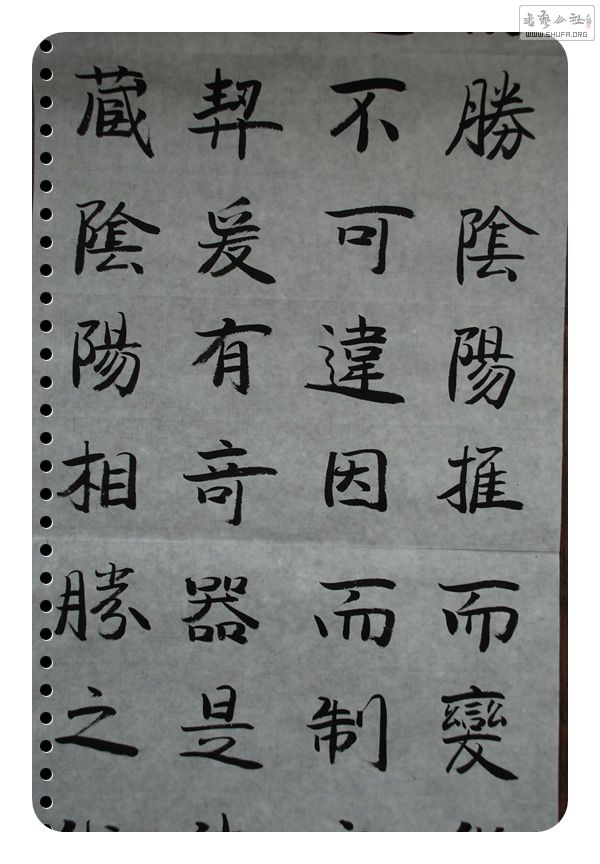 勝陰陽推而變
不可違因而制
契爰有奇器是
藏陰陽相勝之
書藝公社
WWW.SHUFA.ORG